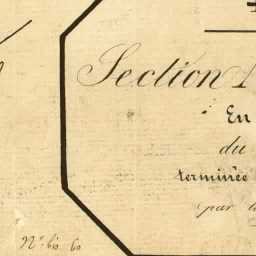 Section
En
du
terminée
par
N° bis 60